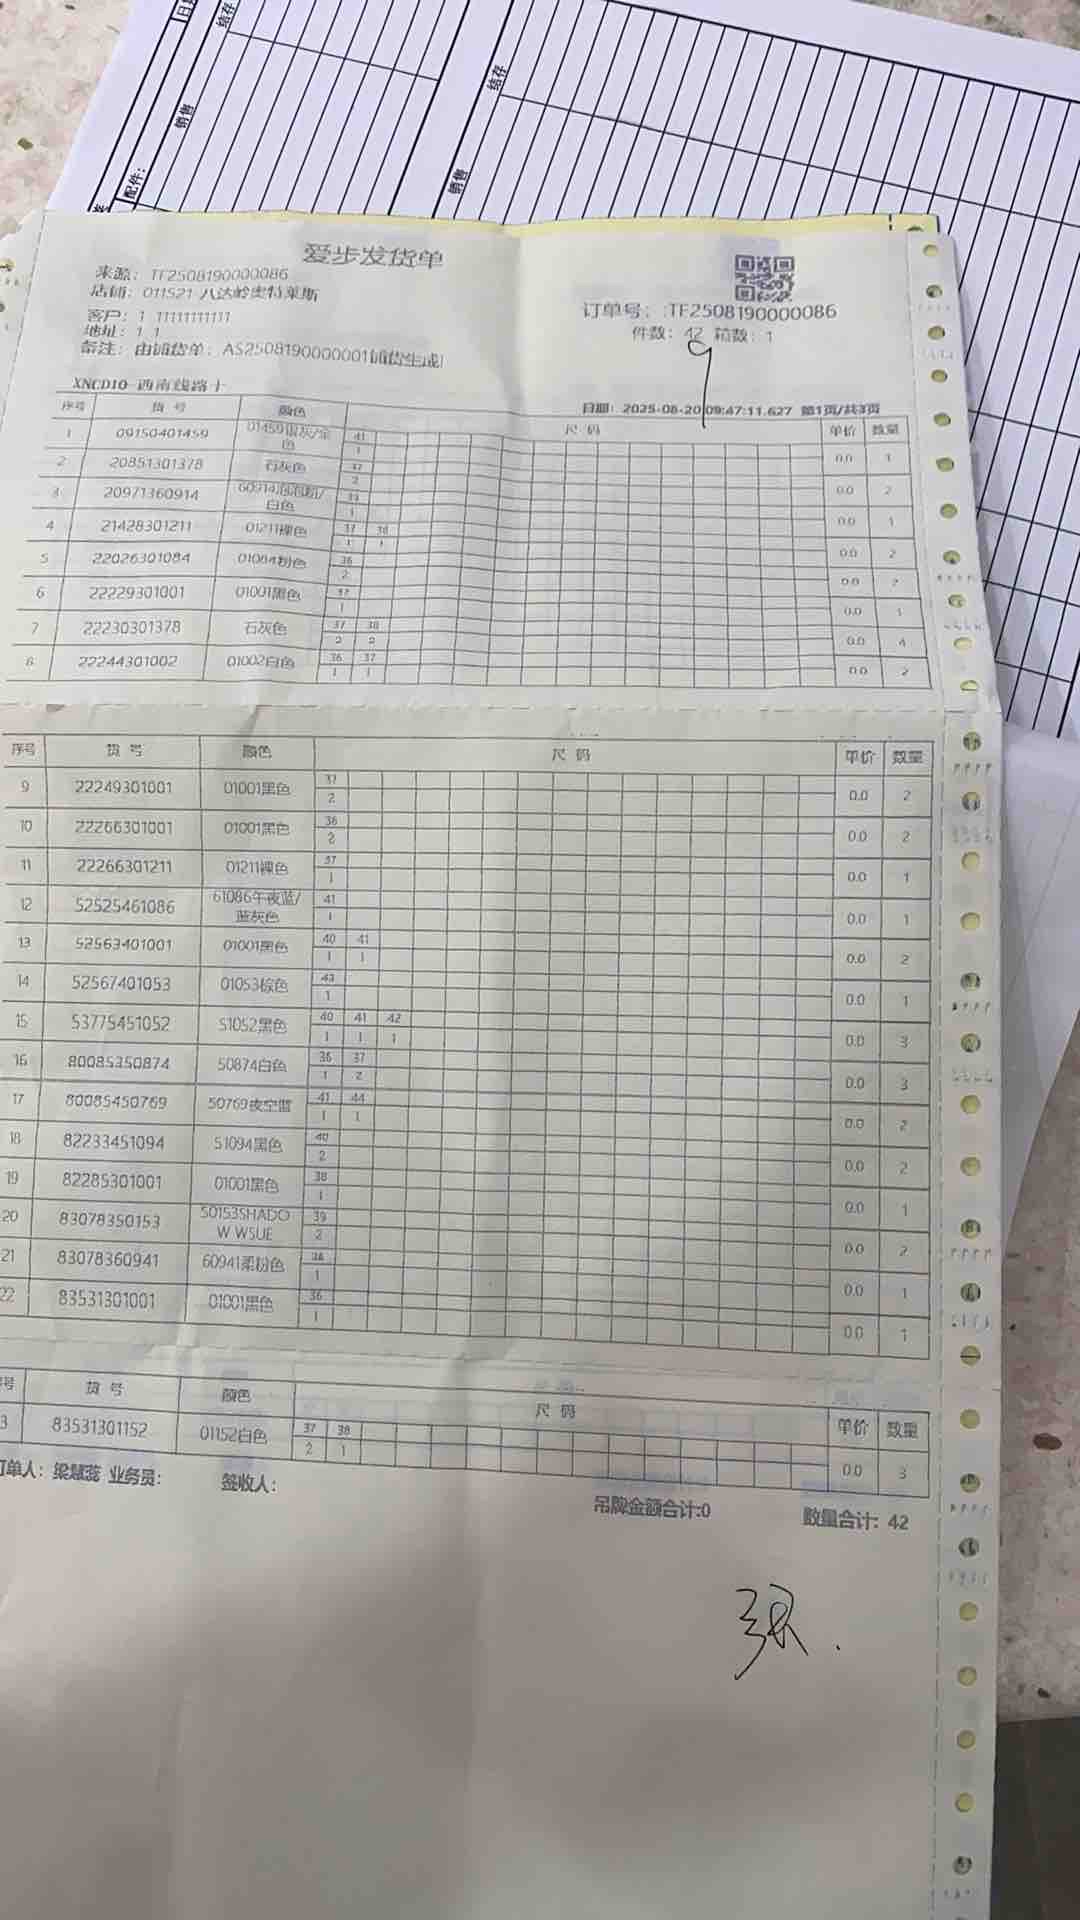 日
结存
销售
配件：
结存
销售
爱步发货单
来源：TF2508190000086
店铺：011521 八达岭奥特莱斯
客户：1 11111111111
地址：1 1
备注：由铺货单：AS2508190000001铺货生成!
订单号：:TF2508190000086
件数：42 箱数：1
9
XNCD10 西南线路十
日期：2025-08-20 09:47:11.627 第1页/共3页
序号 货号 颜色 尺码 单价 数量
1 09150401459 01459银灰/金色 41 1 0.0 1
2 20851301378 石灰色 37 2 0.0 2
3 20971360914 60914泡泡粉/白色 39 1 0.0 1
4 21428301211 01211裸色 37 38 1 1 0.0 2
5 22026301084 01084粉色 36 2 0.0 2
6 22229301001 01001黑色 37 1 0.0 1
7 22230301378 石灰色 37 38 2 2 0.0 4
8 22244301002 01002白色 36 37 1 1 0.0 2
序号 货号 颜色 尺码 单价 数量
9 22249301001 01001黑色 37 2 0.0 2
10 22266301001 01001黑色 36 2 0.0 2
11 22266301211 01211裸色 37 1 0.0 1
12 52525461086 61086午夜蓝/蓝灰色 41 1 0.0 1
13 52563401001 01001黑色 40 41 1 1 0.0 2
14 52567401053 01053棕色 43 1 0.0 1
15 53775451052 51052黑色 40 41 42 1 1 1 0.0 3
16 80085350874 50874白色 36 37 1 2 0.0 3
17 80085450769 50769夜空蓝 41 44 1 1 0.0 2
18 82233451094 51094黑色 40 2 0.0 2
19 82285301001 01001黑色 38 1 0.0 1
20 83078350153 50153SHADOW WSUE 39 2 0.0 2
21 83078360941 60941柔粉色 38 1 0.0 1
22 83531301001 01001黑色 36 1 0.0 1
号 货号 颜色 尺码 单价 数量
3 83531301152 01152白色 37 38 2 1 0.0 3
订单人：梁慧蕊 业务员： 签收人：
吊牌金额合计:0 数量合计: 42
张.